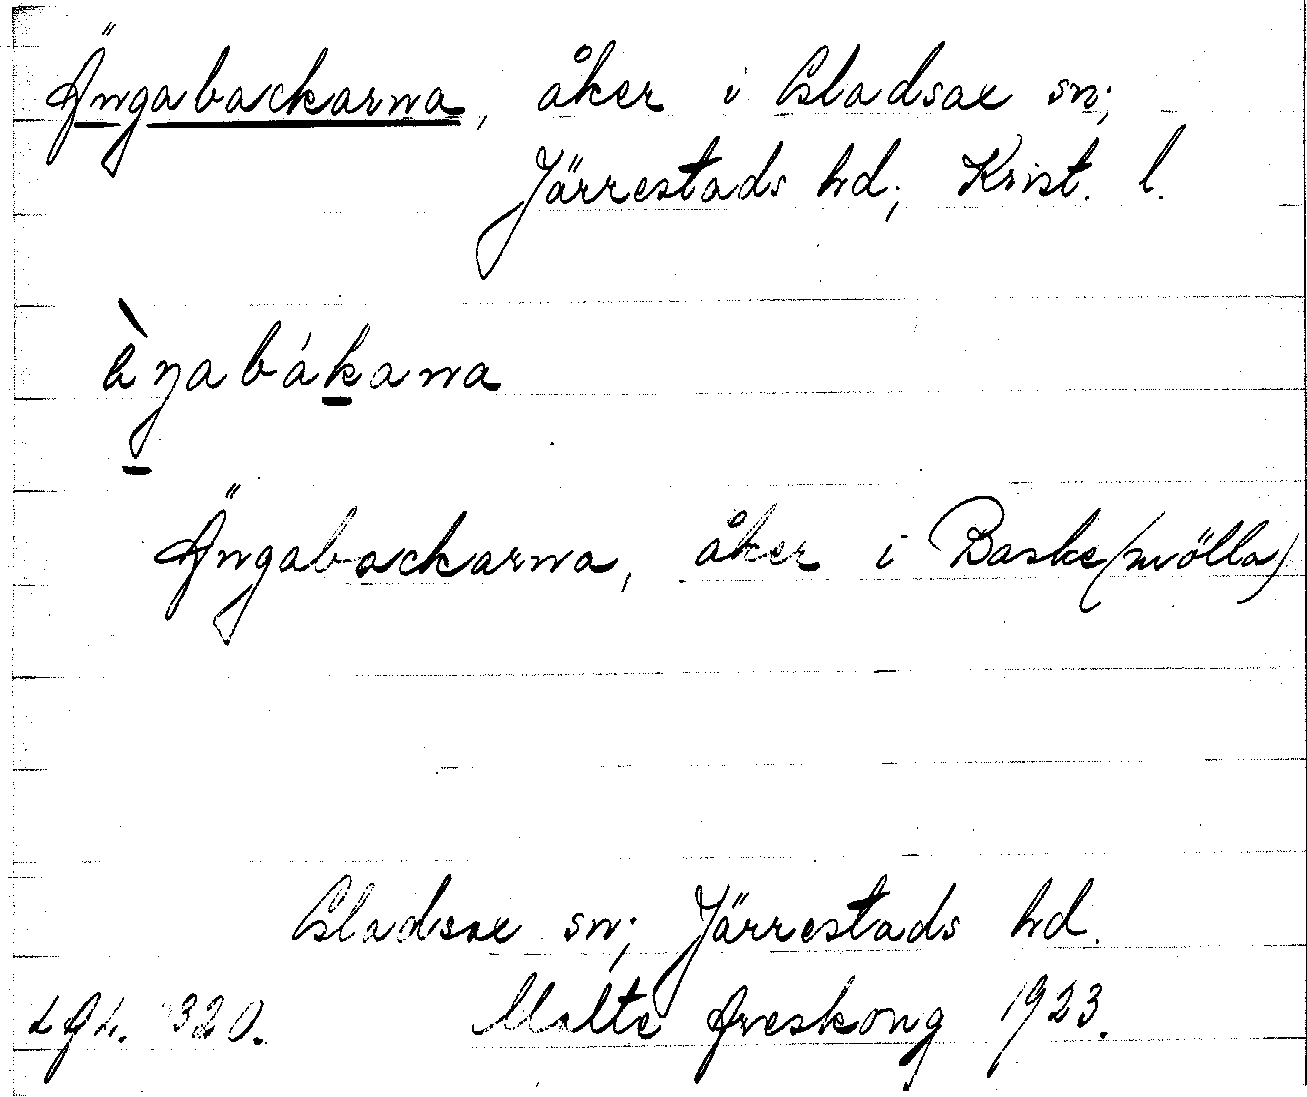 Ängabackarna, åker i Gladsax sn;
Järrestads hd; Krist. l.
Ängabackarna, åker i Baske(mölla)
Gladsax sn; Järrestads hd.
320. Malte Areskong 1923.